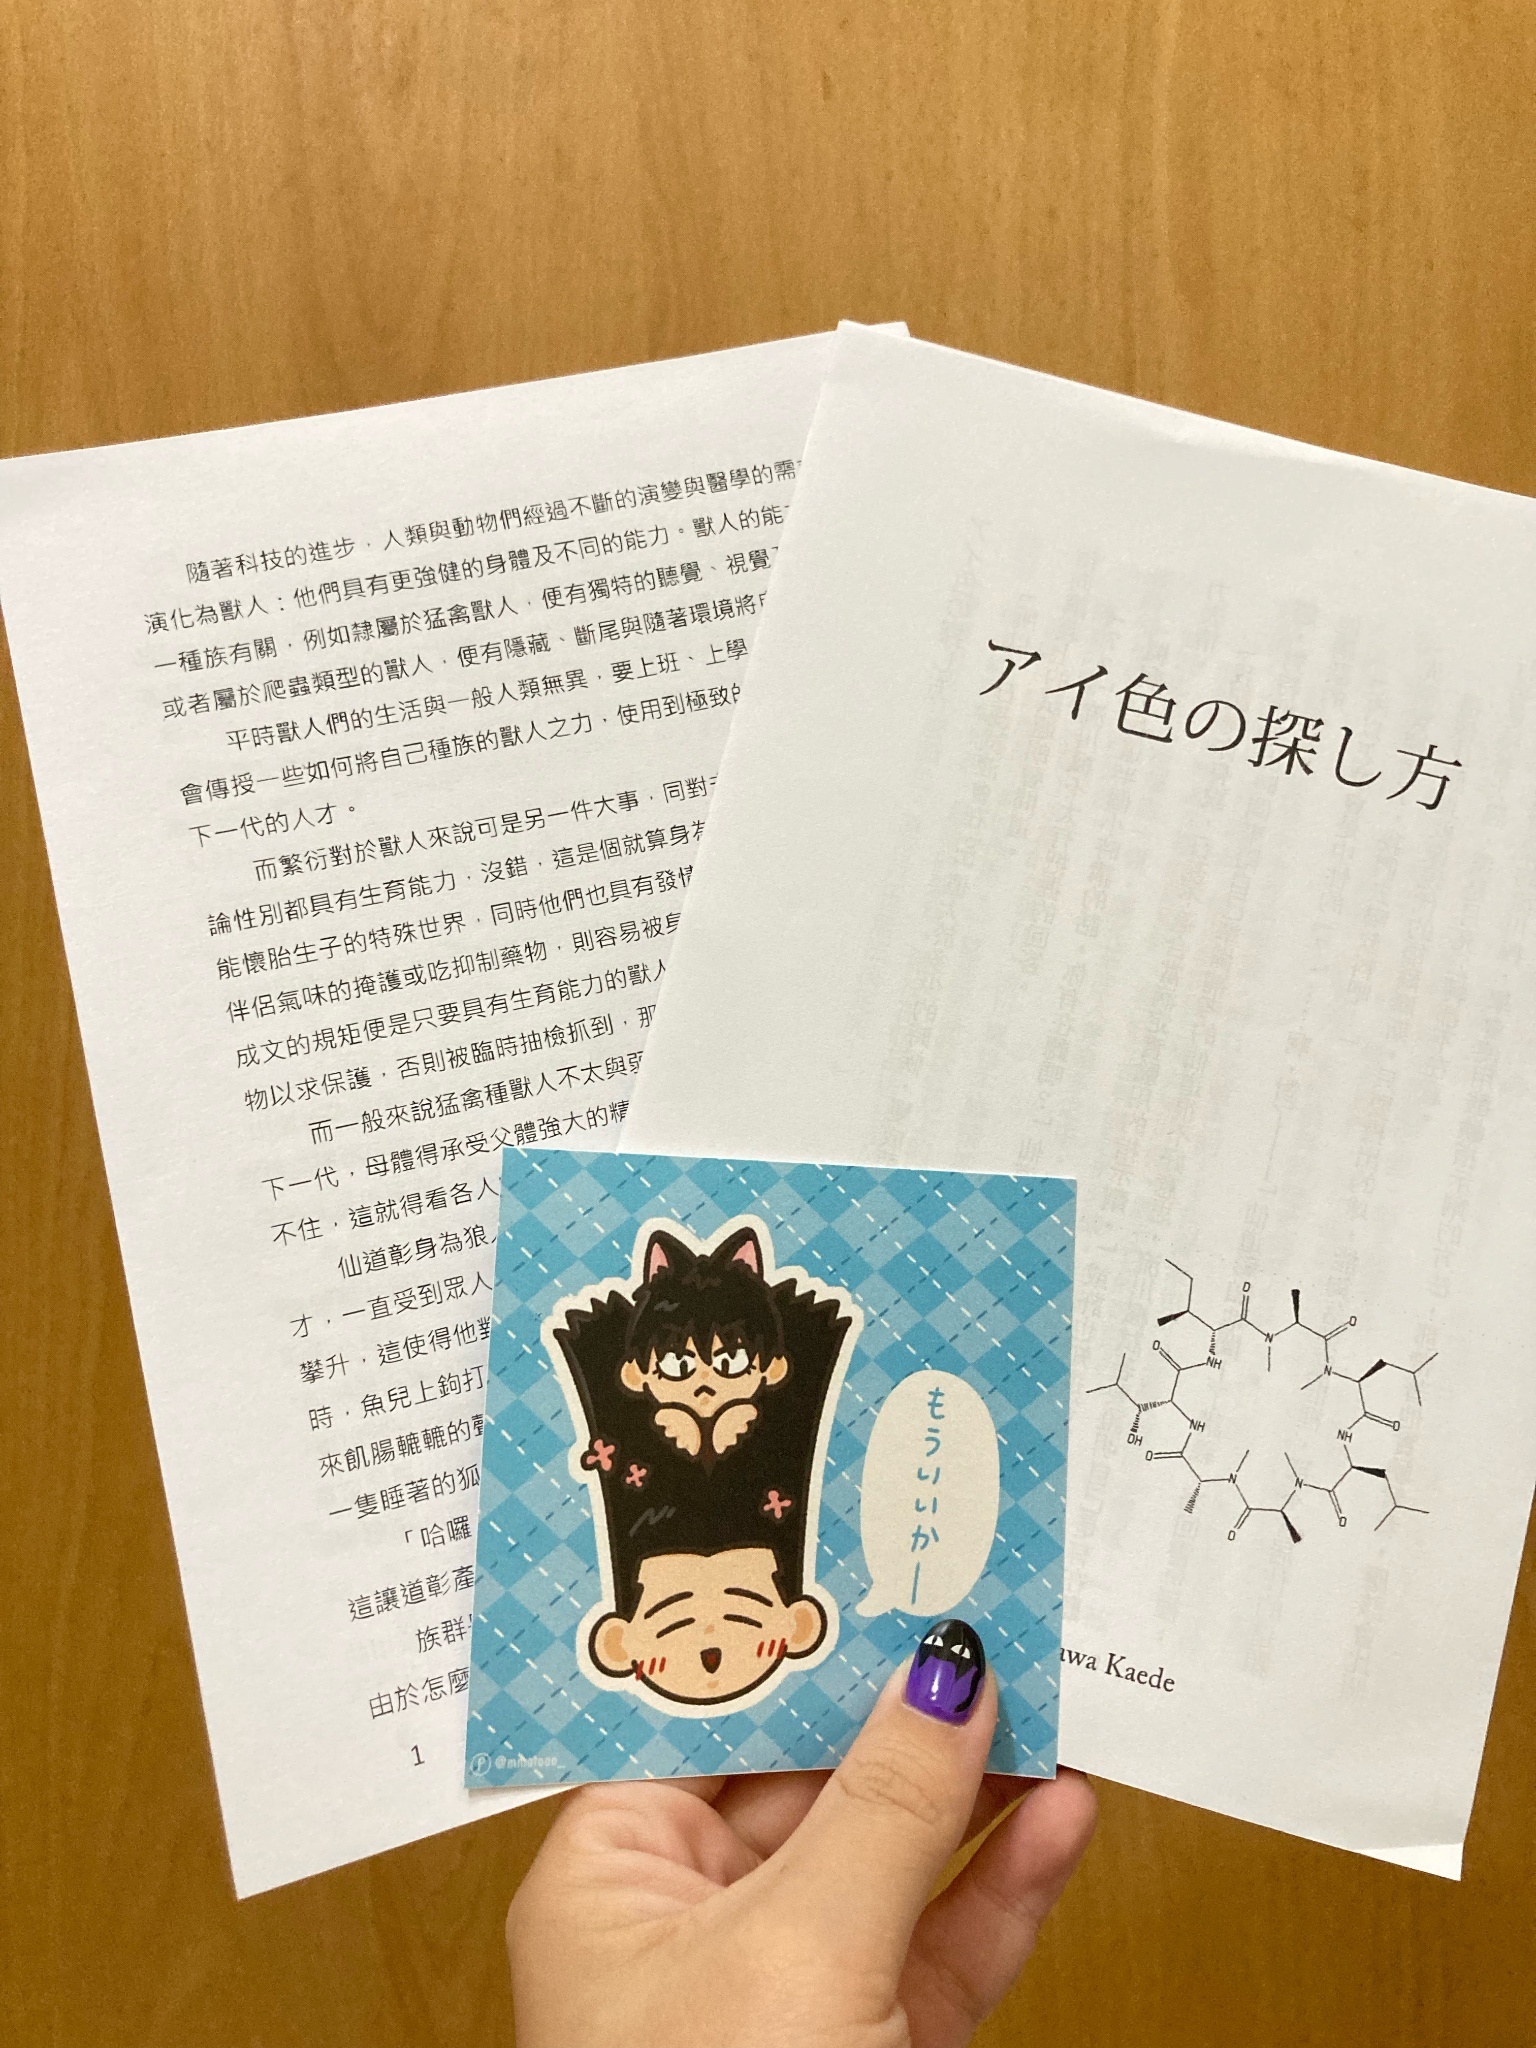 隨著科技的進步，人類與動物們經過不斷的演變與醫學的需
演化為獸人：他們具有更強健的身體及不同的能力。獸人的能
一種族有關，例如隸屬於猛禽獸人，便有獨特的聽覺、視覺
或者屬於爬蟲類型的獸人，便有隱藏、斷尾與隨著環境將
平時獸人們的生活與一般人類無異，要上班、上學
會傳授一些如何將自己種族的獸人之力，使用到極致的
下一代的人才。
而繁衍對於獸人來說可是另一件大事，同對
論性別都具有生育能力，沒錯，這是個就算身為
能懷胎生子的特殊世界，同時他們也具有發情
伴侶氣味的掩護或吃抑制藥物，則容易被身
成文的規矩便是只要具有生育能力的獸人
物以求保護，否則被臨時抽檢抓到，那
而一般來說猛禽種獸人不太與弱
下一代，母體得承受父體強大的精
不住，這就得看各人
仙道彰身為狼
才，一直受到眾人
攀升，這使得他對
時，魚兒上鉤打
來飢腸轆轆的聲
一隻睡著的狐
「哈囉
這讓道彰產
族群
由於怎麼
1
アイ色の探し方
O
O
N
NH
O
N
OH
NH
O
NH
O
N
N
O
O
awa Kaede
もういいかー